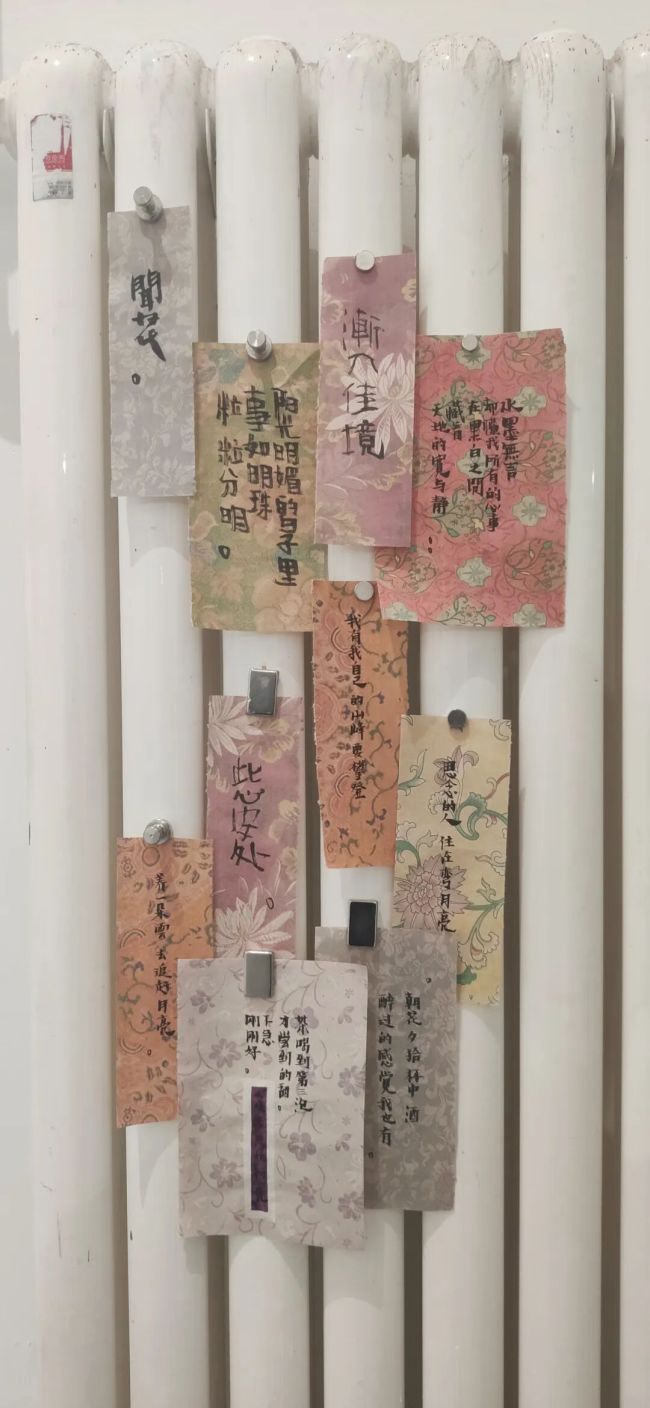 聞花。
漸入佳境
阳光明媚的日子里
事如明珠
粒粒分明。
水墨無言
却懂我所有的心事
在黑白之間
藏着
天地的寬与静。
我有我自己的山 要攀登
此心安处。
思念的人 住在弯月亮
养一朵雲去追 月亮。
茶喝到第三泡
才尝到的甜。
不急
刚刚好。
朝花夕拾杯中酒
醉过的感覺我也有。